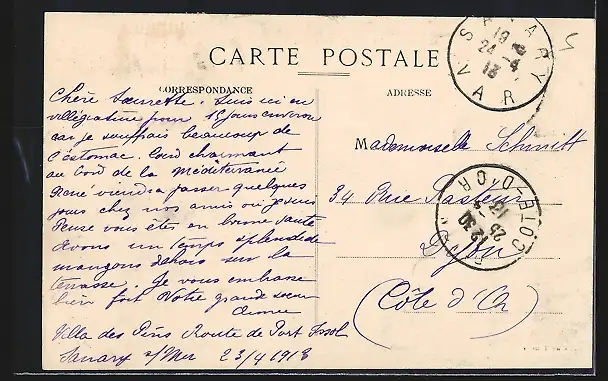 CARTE POSTALE
CORRESPONDANCE
ADRESSE
Chère Sœurette. Suis ici en
villégiature pour 15 jours environ
car je souffrais beaucoup de
l'estomac. Coin charmant
au bord de la Méditerranée
René viendra passer quelques
jours chez nos amis où je suis
Pense vous êtes en bonne santé
Avons un temps splendide
mangons dehors sur la
terrasse. Je vous embrasse
bien fort Votre grande sœur
Aimée
Villa des Pins Route de Port Issol
Sanary s/Mer 23/4 1913
Mademoiselle Schmitt
34 Rue Pasteur
Dijon
(Côte d'Or)
SANARY
19
24 -4
13
VAR
CÔTE-D'OR
12 30
25 -4
13